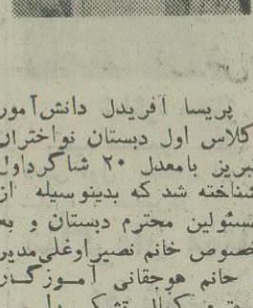 پریسا آفریدل دانش‌آموز
کلاس اول دبستان نواختران
تبریز بامعدل ۲۰ شاگرداول
شناخته شد که بدینوسیله از
مسئولین محترم دبستان و به
خصوص خانم نصیراوغلی‌مدیر
خانم هوجقانی آمـوزگـار